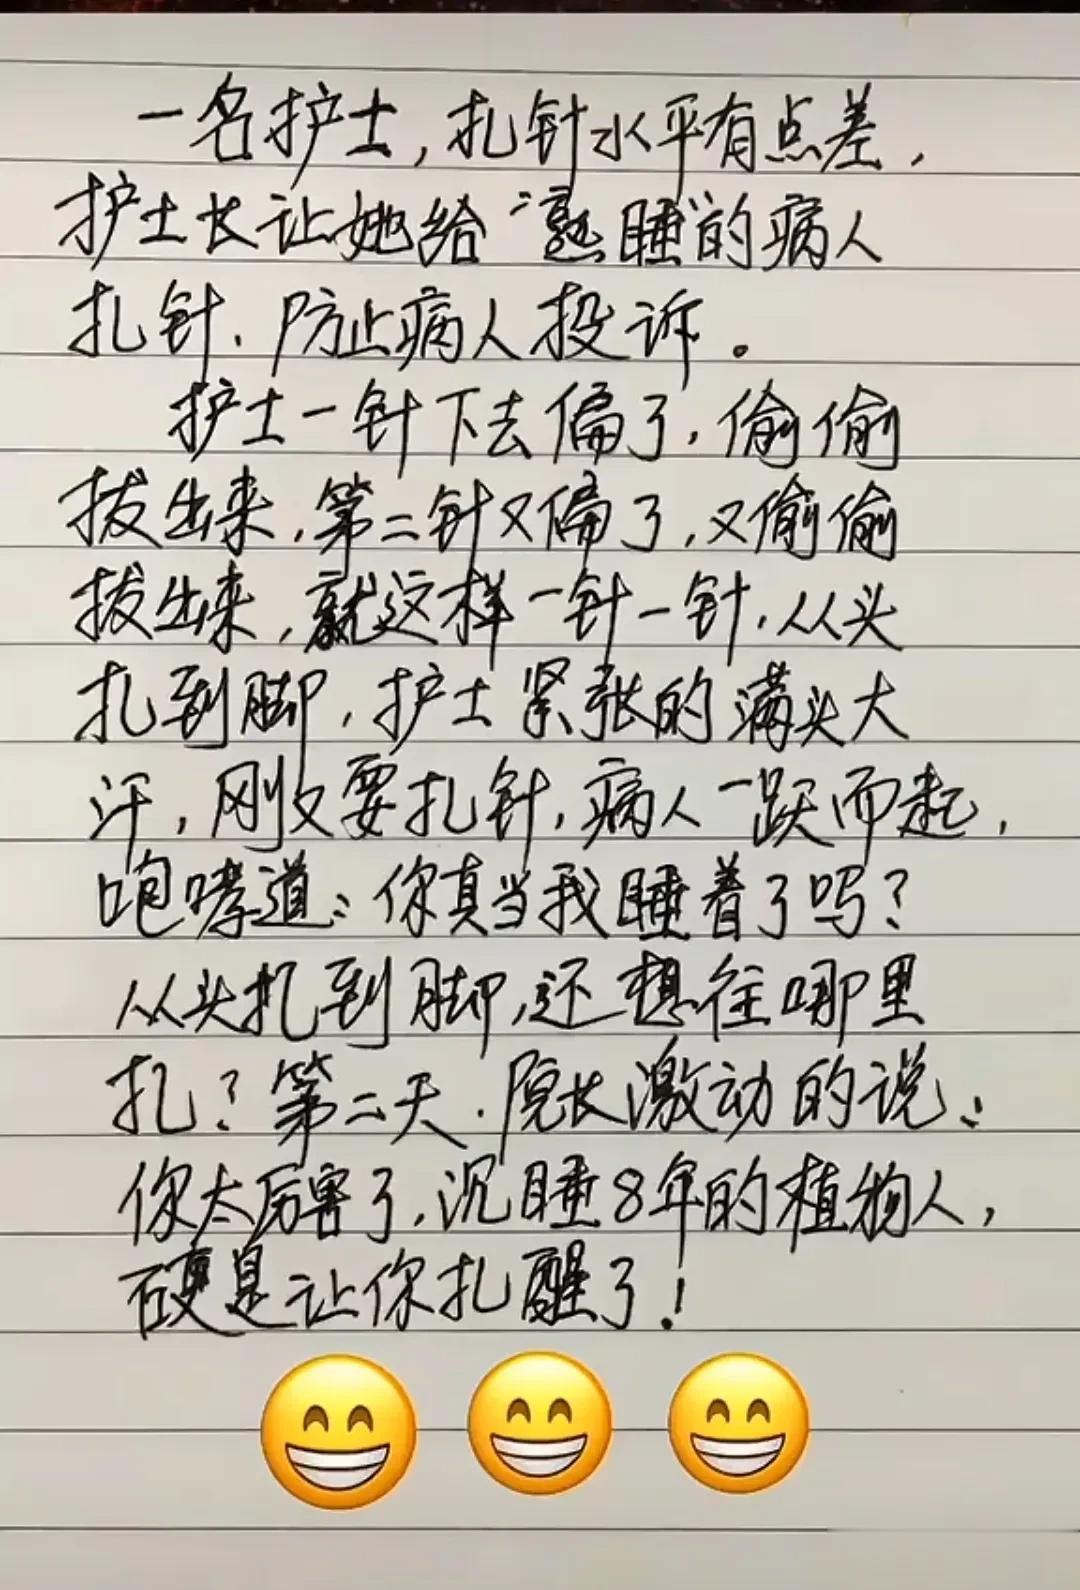 一名护士,扎针水平有点差,
护士长让她给“熟睡”的病人
扎针、防止病人投诉。
护士一针下去偏了,偷偷
拔出来,第二针又偏了,又偷偷
拔出来,就这样一针一针,从头
扎到脚,护士紧张的满头大
汗,刚又要扎针,病人一跃而起,
咆哮道:你真当我睡着了吗?
从头扎到脚,还想往哪里
扎?第二天.院长激动的说:
你太厉害了,沉睡8年的植物人,
硬是让你扎醒了!